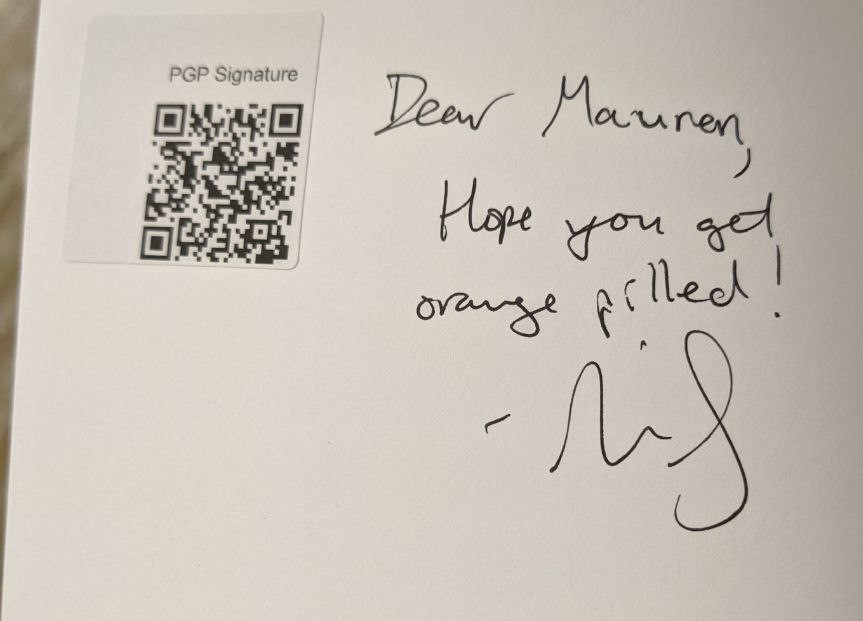 PGP Signature
Dear Mauren,
Hope you get
orange pilled!